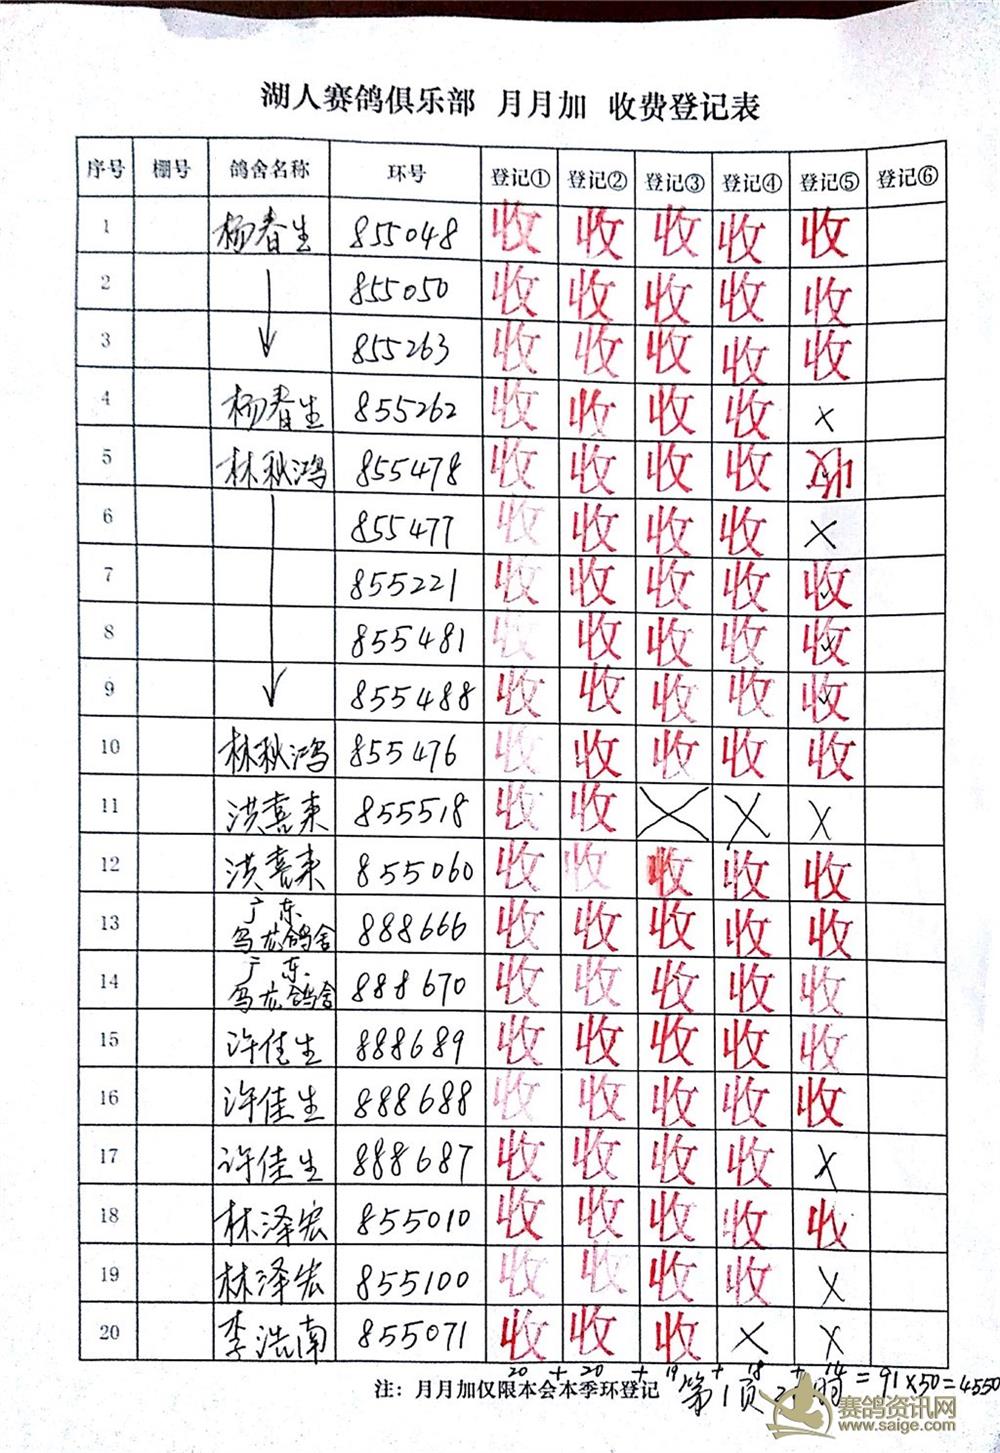 湖人赛鸽俱乐部 月月加 收费登记表
序号 棚号 鸽舍名称 环号 登记① 登记② 登记③ 登记④ 登记⑤ 登记⑥
1 杨春生 855048 收 收 收 收 收
2 855050 收 收 收 收 收
3 855263 收 收 收 收 收
4 杨春生 855262 收 收 收 收 ×
5 林秋鸿 855478 收 收 收 收 收
6 855477 收 收 收 收 ×
7 855221 收 收 收 收 收
8 855481 收 收 收 收 收
9 855488 收 收 收 收 收
10 林秋鸿 855476 收 收 收 收 收
11 洪喜来 855518 收 收 × × ×
12 洪喜来 855060 收 收 收 收 收
13 广东乌龙鸽舍 888666 收 收 收 收 收
14 广东乌龙鸽舍 888670 收 收 收 收 收
15 许佳生 888689 收 收 收 收 收
16 许佳生 888688 收 收 收 收 收
17 许佳生 888687 收 收 收 收 ×
18 林泽宏 855010 收 收 收 收 收
19 林泽宏 855100 收 收 收 收 ×
20 李浩南 855071 收 收 收 × ×
20 + 20 + 19 + 18 + 14 = 91×50=4550
注：月月加仅限本会本季环登记 第1页
赛鸽资讯网
www.saige.com